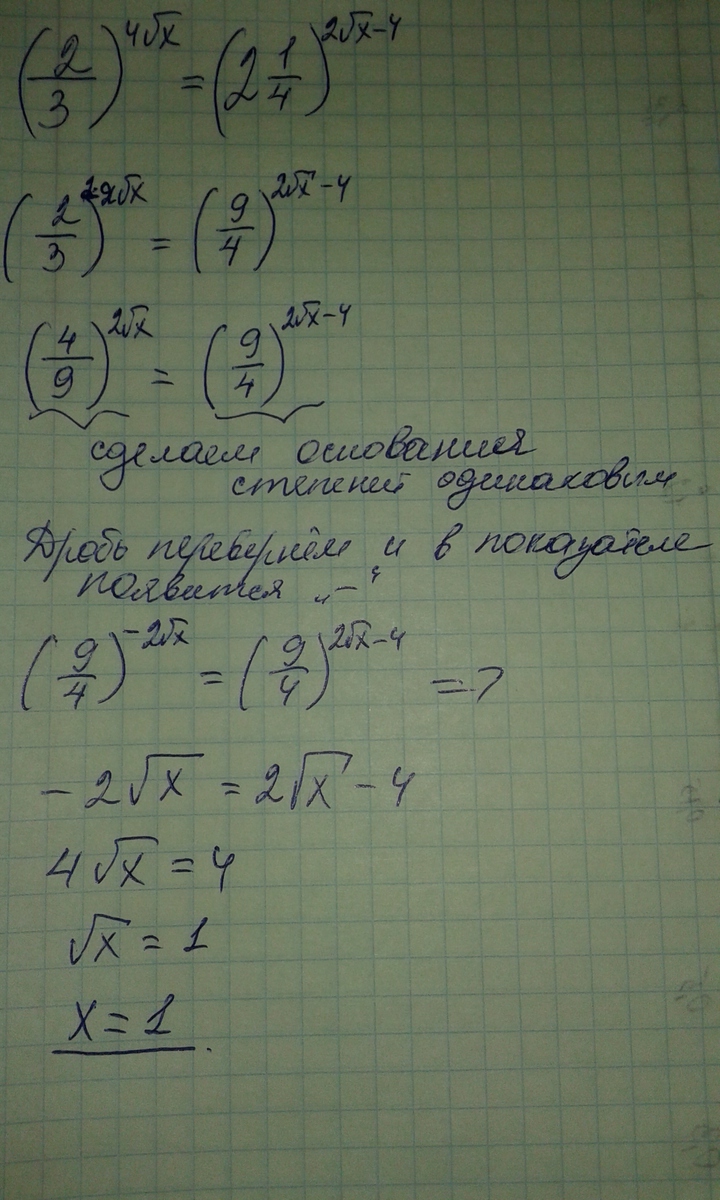 (2/3)^(4√x) = (2 1/4)^(2√x-4)
(2/3)^(2·2√x) = (9/4)^(2√x-4)
(4/9)^(2√x) = (9/4)^(2√x-4)
сделаем основания
степеней одинаковым
Дробь перевернём и в показателе
появится „-“
(9/4)^(-2√x) = (9/4)^(2√x-4) =>
-2√x = 2√x - 4
4√x = 4
√x = 1
x = 1.